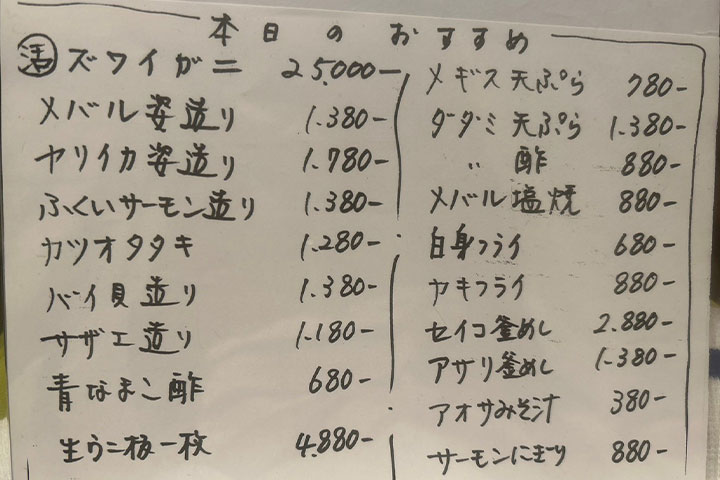 本日のおすすめ
活 ズワイガニ 25.000-
メバル姿造り 1.380-
ヤリイカ姿造り 1.780-
ふくいサーモン造り 1.380-
カツオタタキ 1.280-
バイ貝造り 1.380-
サザエ造り 1.180-
青なまこ酢 680-
生ウニ板一枚 4.880-
メギス天ぷら 780-
ダダミ天ぷら 1.380-
〃 酢 880-
メバル塩焼 880-
白身フライ 680-
カキフライ 880-
セイコ釜めし 2.880-
アサリ釜めし 1.380-
アオサみそ汁 380-
サーモンにぎり 880-